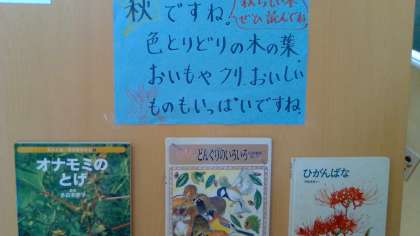 秋ですね。
秋らしい本
ぜひ読んでね。
色とりどりの木の葉。
おいもやクリ、おいしい
ものもいっぱいですね。
オナモミの
とげ
どんぐりのいろいろ
ひがんばな